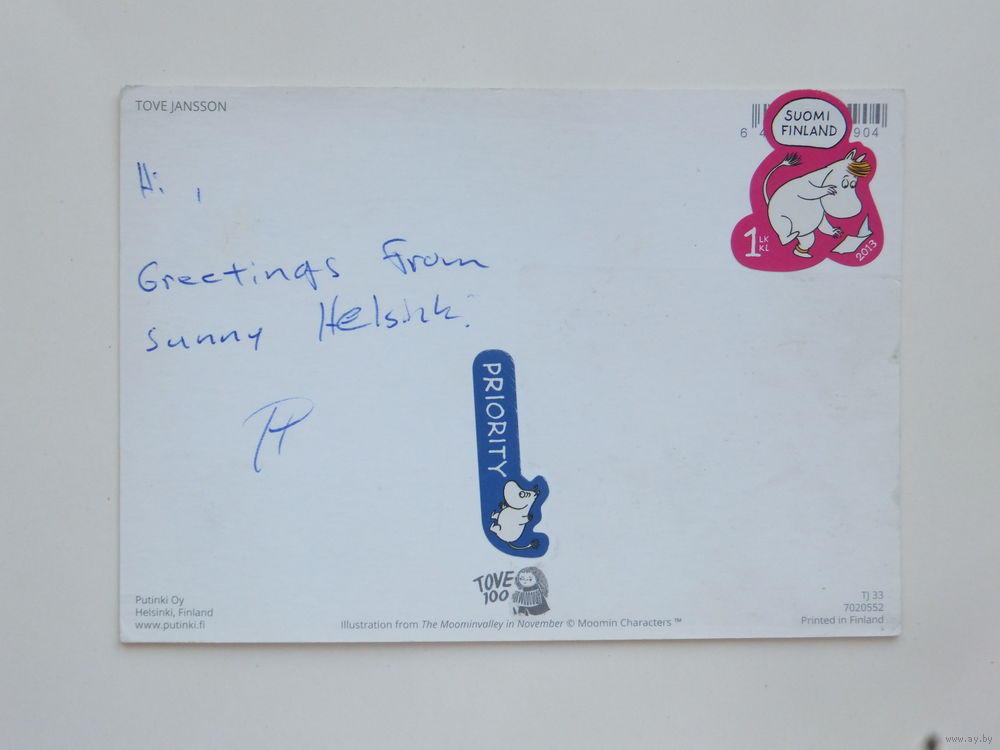 TOVE JANSSON
SUOMI
FINLAND
6 4 904
1 LK
KL
2013
Hi,
Greetings from
sunny Helsinki
PRIORITY
TOVE
100
Putinki Oy
Helsinki, Finland
www.putinki.fi
Illustration from The Moominvalley in November © Moomin Characters ™
TJ 33
7020552
Printed in Finland
www.ay.by